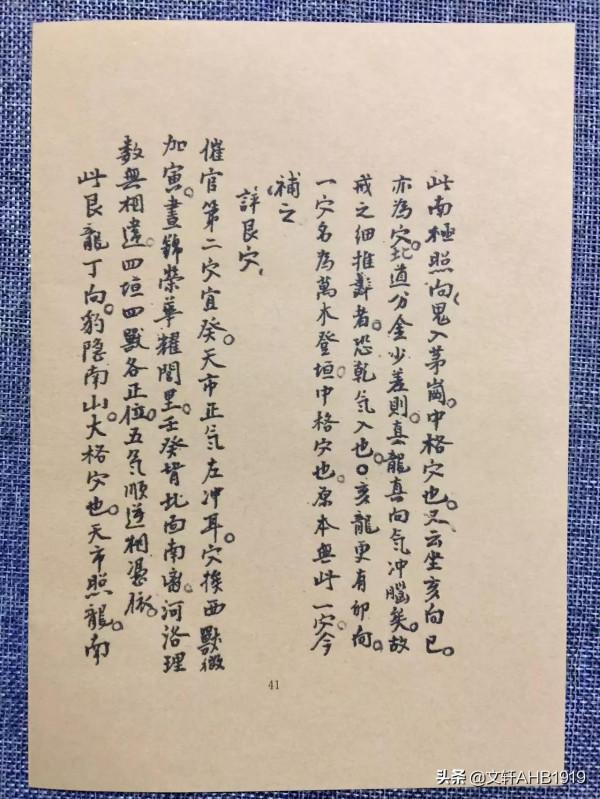 此南極照向鬼入茅崗中格穴也。又云坐亥向巳。
亦為穴。北道分金少差則真龍真向气冲腦矣。故
戒之細推䕫者。恐乾气入也。亥龍更有卯向。
一穴名為萬木登垣中格穴也。原本無此一穴今
補之
詳艮穴
催官第二穴宜癸。天市正气左冲耳。穴挨西獸微
加寅。晝錦榮華耀閭里。壬癸背北面南离。河洛理
数無相違。四垣四獸各正位。五氣順逆相憑依。
此艮龍丁向。豹隐南山大格穴也。天市照龍。南
41
头条 @文轩AHB1919